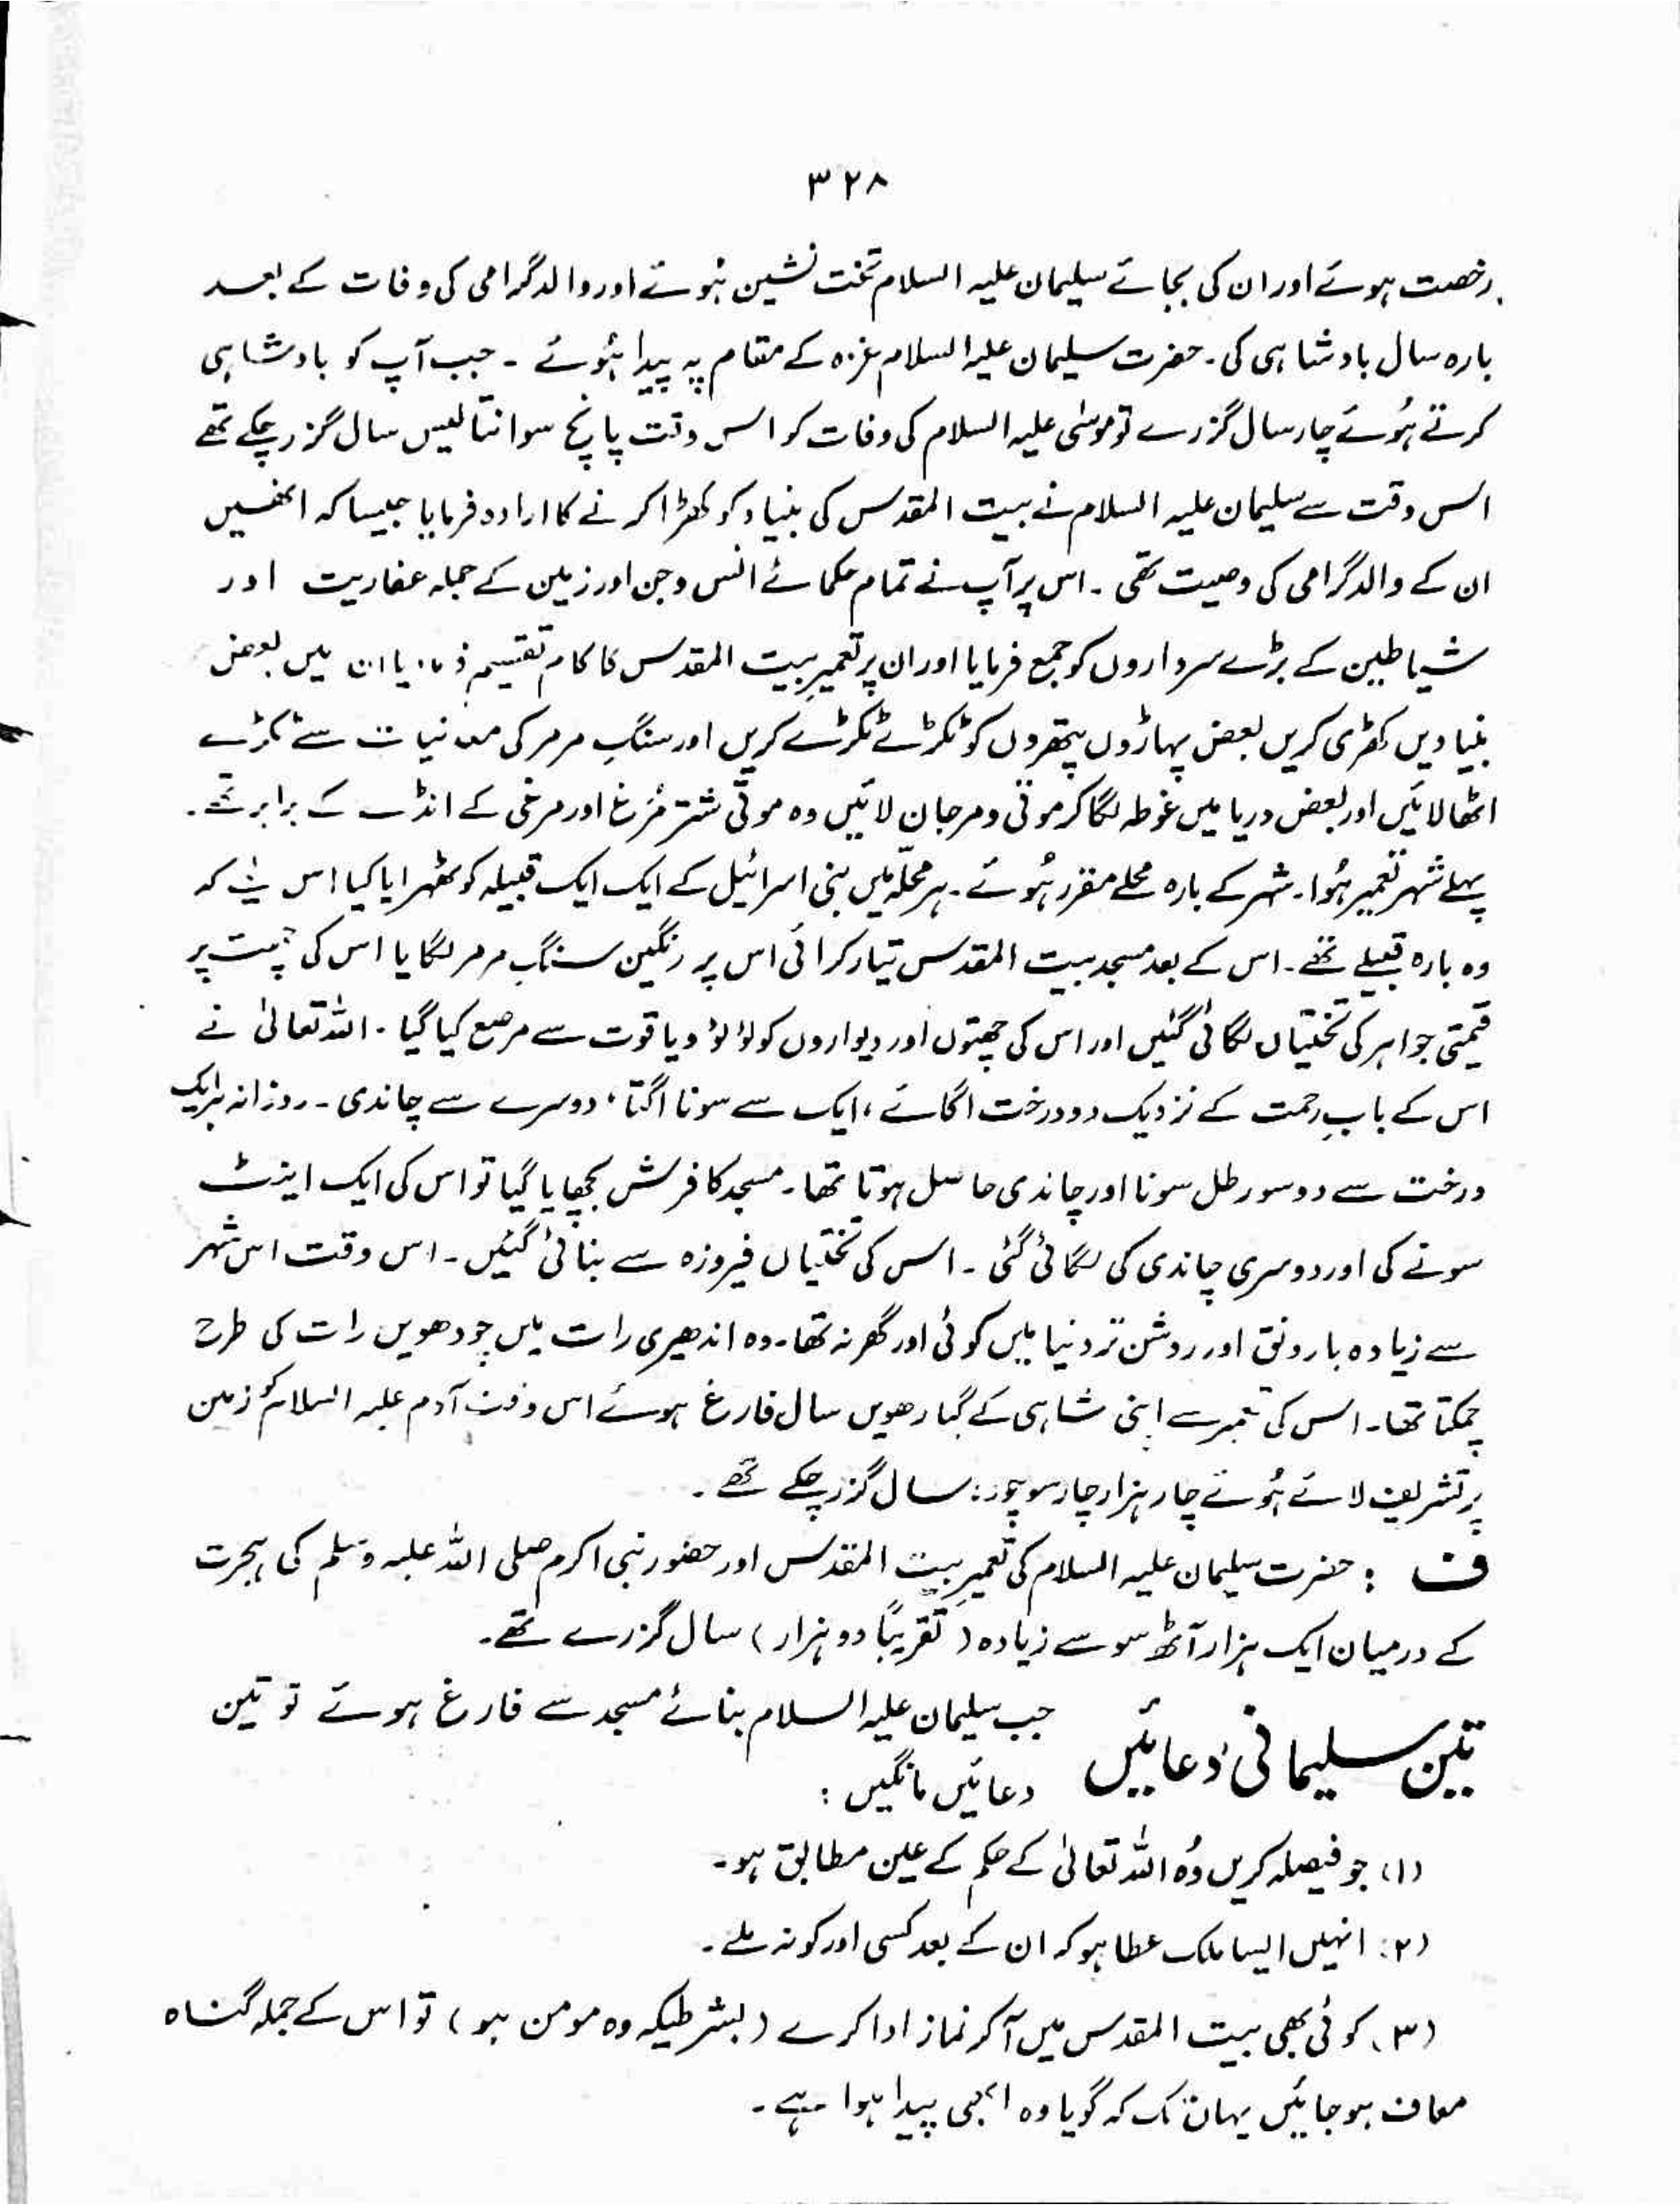 ۳۲۸
رخصت ہوئے اور ان کی بجائے سلیمان علیہ السلام تخت نشین ہوئے اور والد گرامی کی وفات کے بعد
بارہ سال بادشاہی کی۔ حضرت سلیمان علیہ السلام غزہ کے مقام پہ پیدا ہُوئے ۔ جب آپ کو بادشاہی
کرتے ہُوئے چار سال گزرے تو موسٰی علیہ السلام کی وفات کو اس وقت پانچ سو انتالیس سال گزر چکے تھے
اس وقت سے سلیمان علیہ السلام نے بیت المقدس کی بنیاد کو کھڑا کرنے کا ارادہ فرمایا جیسا کہ انھیں
ان کے والد گرامی کی وصیت تھی ۔ اس پر آپ نے تمام حکمائے انس و جن اور زمین کے جملہ عفاریت اور
شیاطین کے بڑے سرداروں کو جمع فرمایا اور ان پر تعمیرِ بیت المقدس کا کام تقسیم فرمایا ان میں بعض
بنیادیں کھڑی کریں بعض پہاڑوں پتھروں کو ٹکڑے ٹکڑے کریں اور سنگِ مرمر کی معدنیات سے ٹکڑے
اٹھا لائیں اور بعض دریا میں غوطہ لگا کر موتی و مرجان لائیں وہ موتی شتر مُرغ اور مرغی کے انڈے کے برابر تھے۔
پہلے شہر تعمیر ہُوا۔ شہر کے بارہ محلے مقرر ہُوئے۔ ہر محلّہ میں بنی اسرائیل کے ایک ایک قبیلہ کو ٹھہرایا گیا اس لیے کہ
وہ بارہ قبیلے تھے۔ اس کے بعد مسجد بیت المقدس تیار کرائی اس پر رنگین سنگِ مرمر لگایا اس کی چھت پر
قیمتی جواہر کی تختیاں لگائی گئیں اور اس کی چھتوں اور دیواروں کو لؤلؤ و یاقوت سے مرصع کیا گیا ۔ اللہ تعالیٰ نے
اس کے بابِ رحمت کے نزدیک دو درخت اگائے، ایک سے سونا اگتا، دوسرے سے چاندی ۔ روزانہ ہر ایک
درخت سے دو سو رطل سونا اور چاندی حاصل ہوتا تھا۔ مسجد کا فرش بچھایا گیا تو اس کی ایک اینٹ
سونے کی اور دوسری چاندی کی لگائی گئی ۔ اس کی تختیاں فیروزہ سے بنائی گئیں۔ اس وقت اس شہر
سے زیادہ بارونق اور روشن تر دنیا میں کوئی اور گھر نہ تھا۔ وہ اندھیری رات میں چودھویں رات کی طرح
چمکتا تھا۔ اس کی تعمیر سے اپنی شاہی کے گیارھویں سال فارغ ہوئے اس وقت آدم علیہ السلام کو زمین
پر تشریف لائے ہُوئے چار ہزار چار سو چودہ سال گزر چکے تھے ۔
ف : حضرت سلیمان علیہ السلام کی تعمیرِ بیت المقدس اور حضور نبی اکرم صلی اللہ علیہ وسلم کی ہجرت
کے درمیان ایک ہزار آٹھ سو سے زیادہ (تقریباً دو ہزار) سال گزرے تھے۔
تین سلیمانی دعائیں جب سلیمان علیہ السلام بنائے مسجد سے فارغ ہوئے تو تین
دعائیں مانگیں :
(۱) جو فیصلہ کریں وُہ اللہ تعالیٰ کے حکم کے عین مطابق ہو۔
(۲) انہیں ایسا ملک عطا ہو کہ ان کے بعد کسی اور کو نہ ملے ۔
(۳) کوئی بھی بیت المقدس میں آکر نماز ادا کرے (بشرطیکہ وہ مومن ہو) تو اس کے جملہ گناہ
معاف ہو جائیں یہاں تک کہ گویا وہ ابھی پیدا ہوا ہے ۔